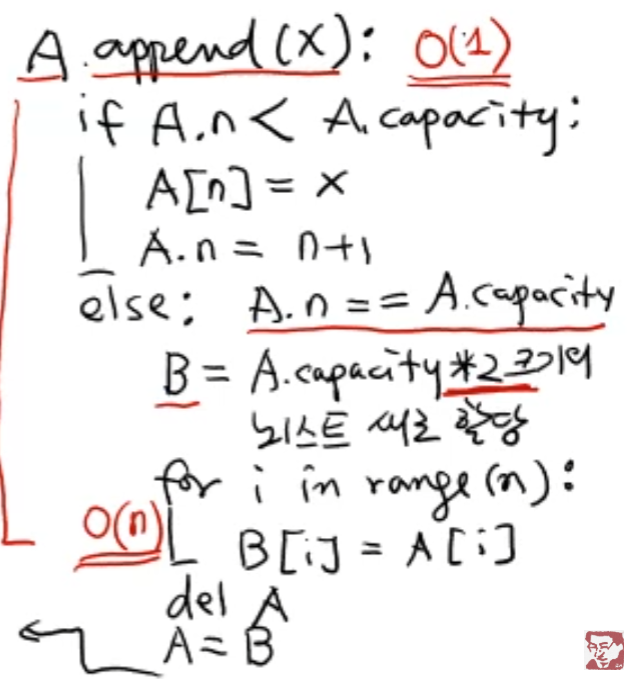 A.append(x): O(1)
if A.n < A.capacity:
A[n] = x
A.n = n+1
else: A.n == A.capacity
B = A.capacity*2 크기의
리스트 새로 할당
for i in range(n):
O(n) B[i] = A[i]
del A
A = B